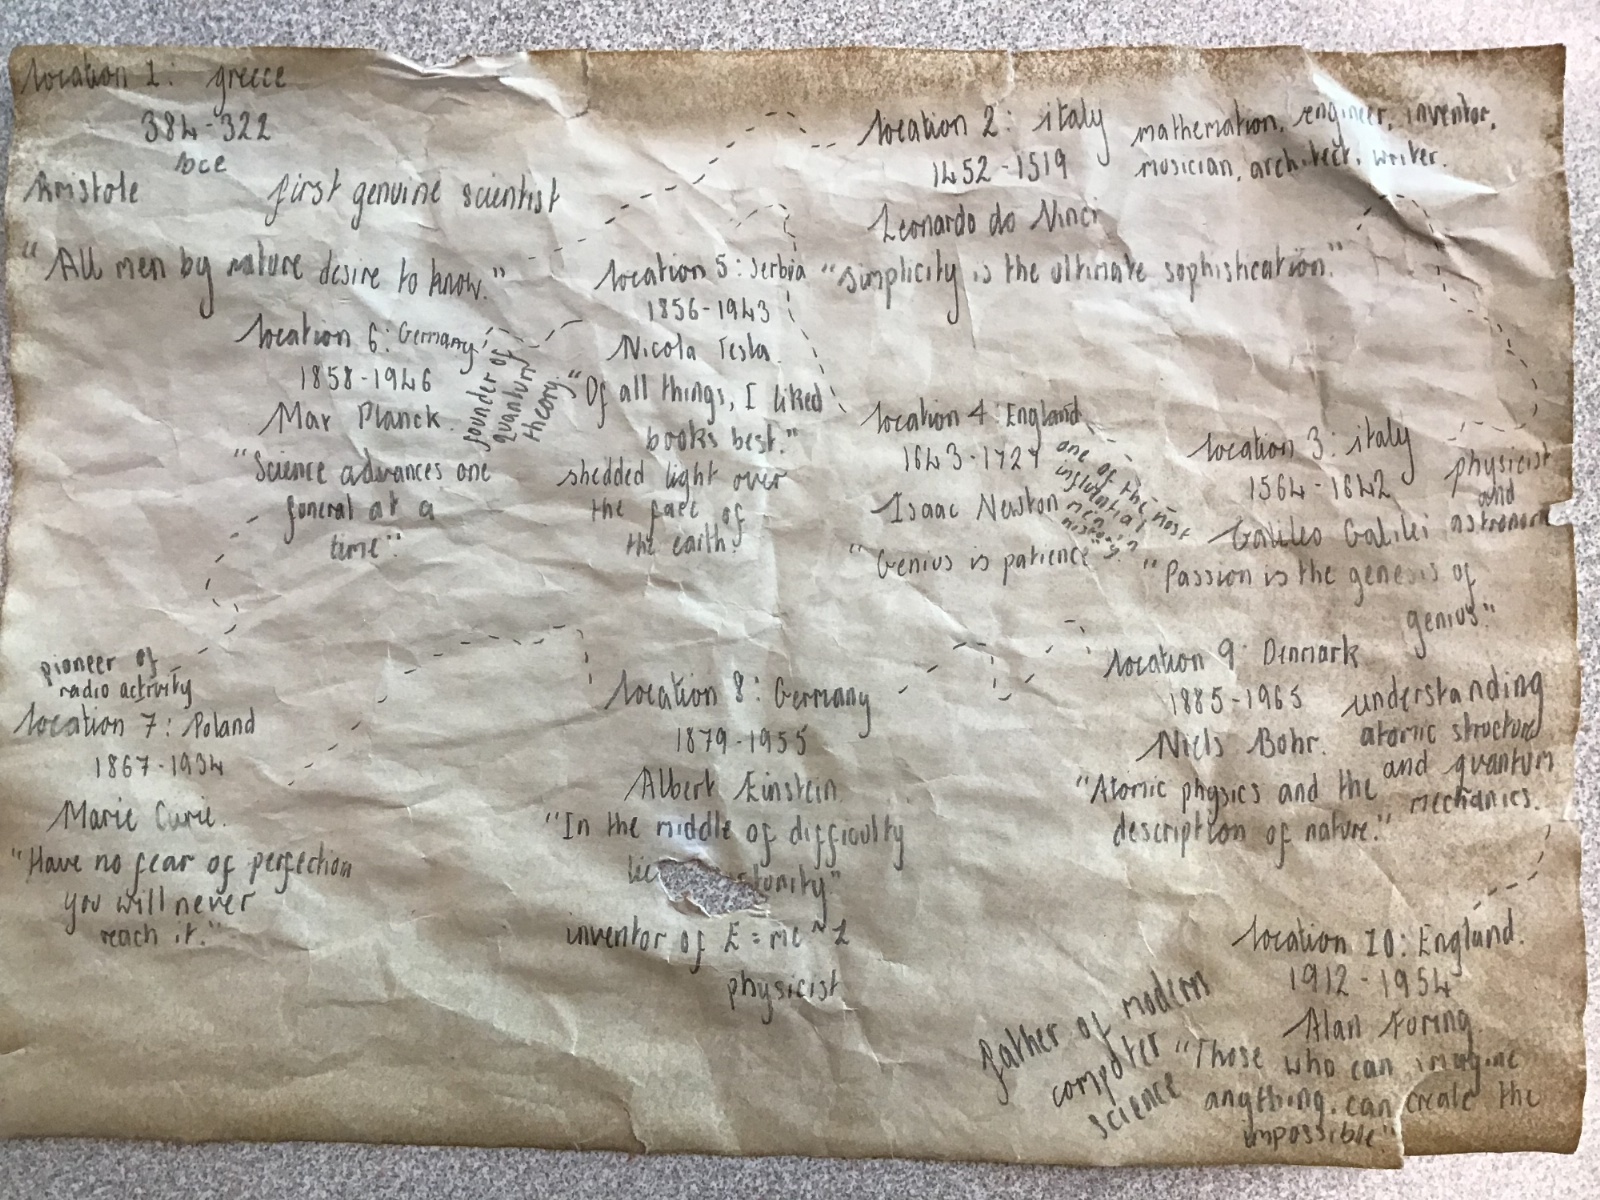 location 1: greece
384-322
bce
Aristole
first genuine scientist
"All men by nature desire to know."
location 2: italy
1452-1519
mathemation, engineer, inventor,
musician, architect, writer.
Leonardo do Vinci
"Simplicity is the ultimate sophistication."
location 3: italy
1564-1642
Galileo Galilei
physicist
and
"Passion is the genesis of
genius."
location 4: England
1643-1727
Isaac Newton
one of the most
influential
men in
history.
"Genius is patience"
location 5: Serbia
1856-1943
Nicola Tesla.
"Of all things, I liked
books best."
shedded light over
the face of
the earth.
location 6: Germany
1858-1946
Max Planck.
founder of
quantum
theory.
"Science advances one
funeral at a
time".
pioneer of
radio activity
location 7: Poland
1867-1934
Marie Curie.
"Have no fear of perfection
you will never
reach it."
location 8: Germany
1879-1955
Albert Einstein
"In the middle of difficulty
inventor of E=mc^2
physicist
location 9: Denmark
1885-1965
Niels Bohr.
understanding
atomic structure
and quantum
mechanics.
"Atomic physics and the
description of nature."
location 10: England.
1912-1954
Alan Turing
father of modern
computer
science
"Those who can imagine
anything, can create the
impossible"